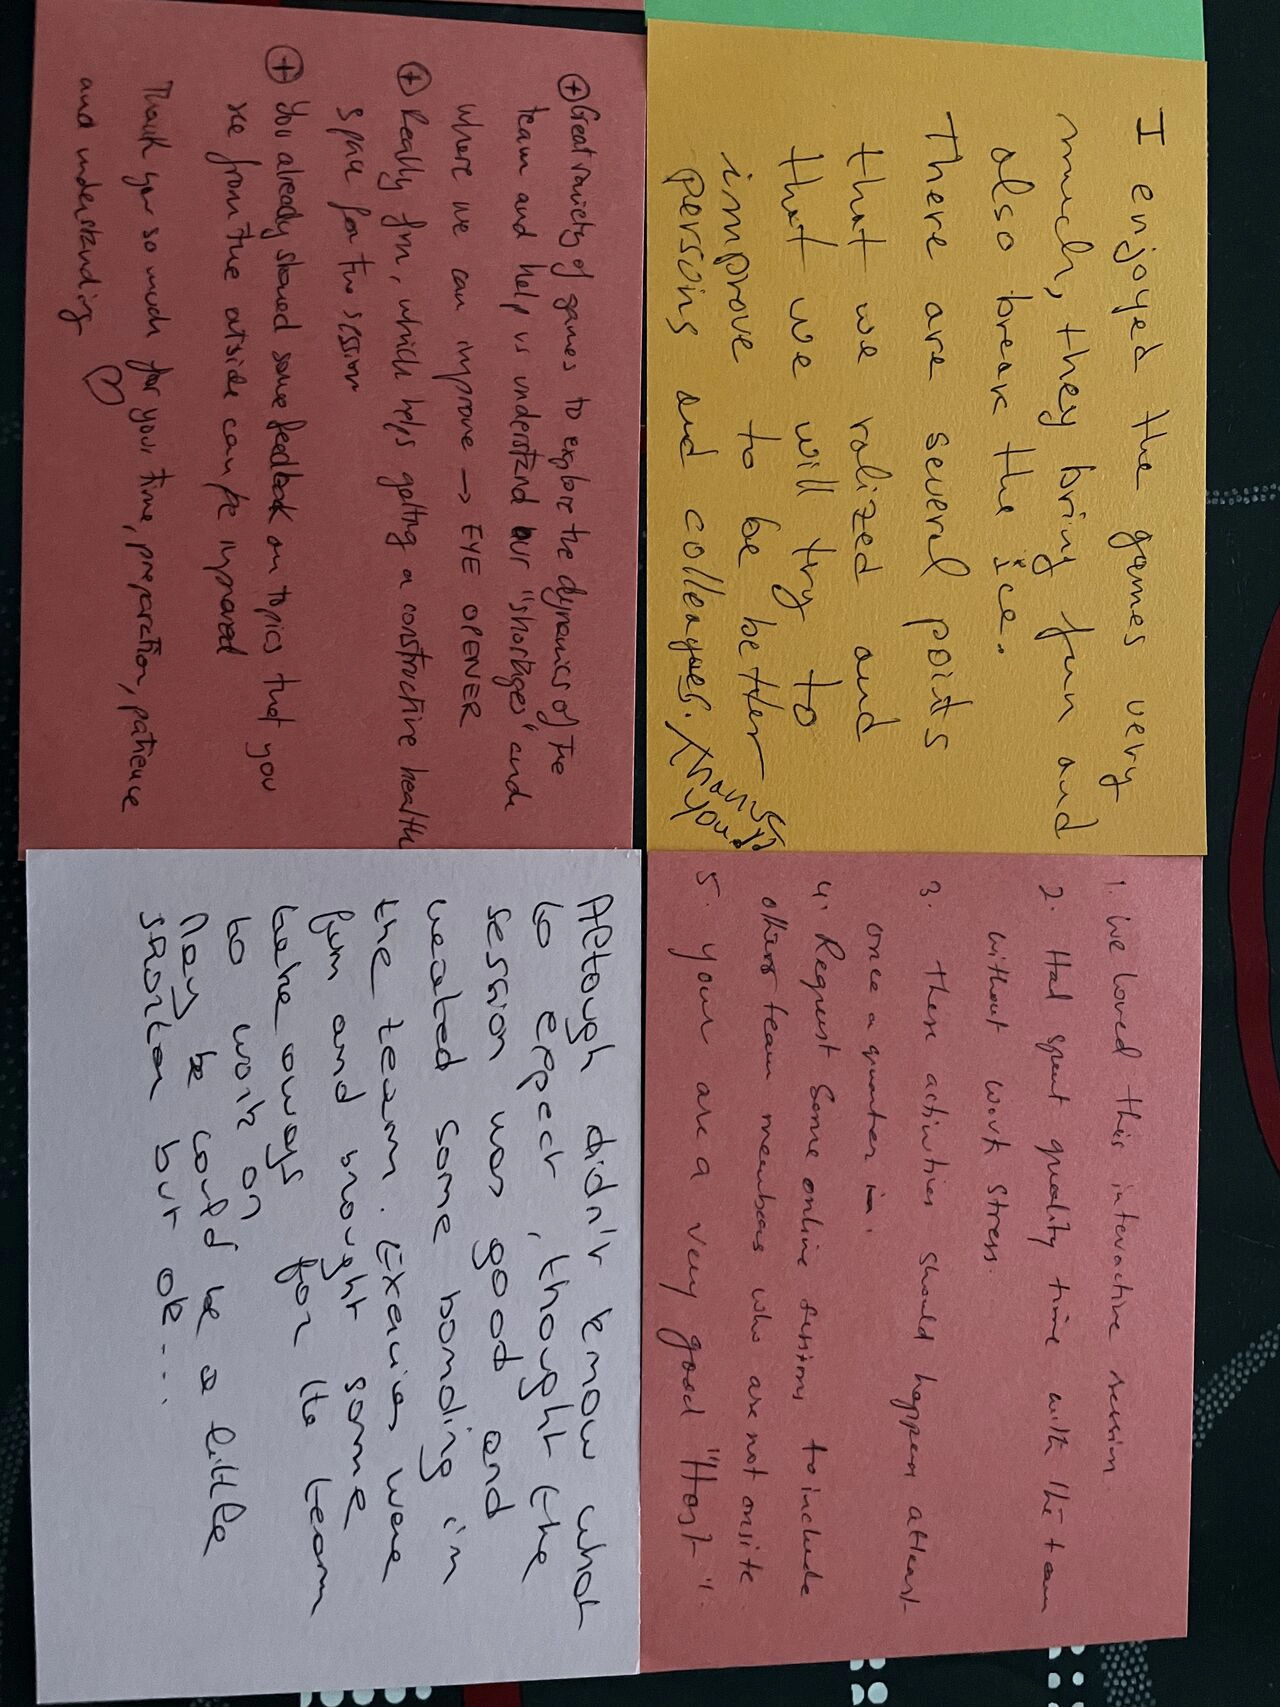 I enjoyed the games very
much, they bring fun and
also break the ice.
There are several points
that we ralized and
that we will try to
improve to be better
persons and colleagues. Thank
you!
1. We loved this interactive session.
2. Had spent quality time with the team
without work stress.
3. These activities should happen atleast
once a quarter
4. Request some online sessions to include
others team members who are not onsite
5. your are a very good "Host".
⊕ Great variety of games to explore the dynamics of the
team and help us understand our "shortages" and
where we can improve → EYE OPENER
⊕ Really fun, which helps getting a constructive health
space for the session
⊕ You already shared some feedback on topics that you
see from the outside can be improved
Thank you so much for your time, preparation, patience
and understanding ♡
Altough didn't know what
to expect, thought the
session was good and
created some bonding in
the team. Exercises were
fun and brought some
take aways for the team
to work on
May be could be a little
shorter but ok...